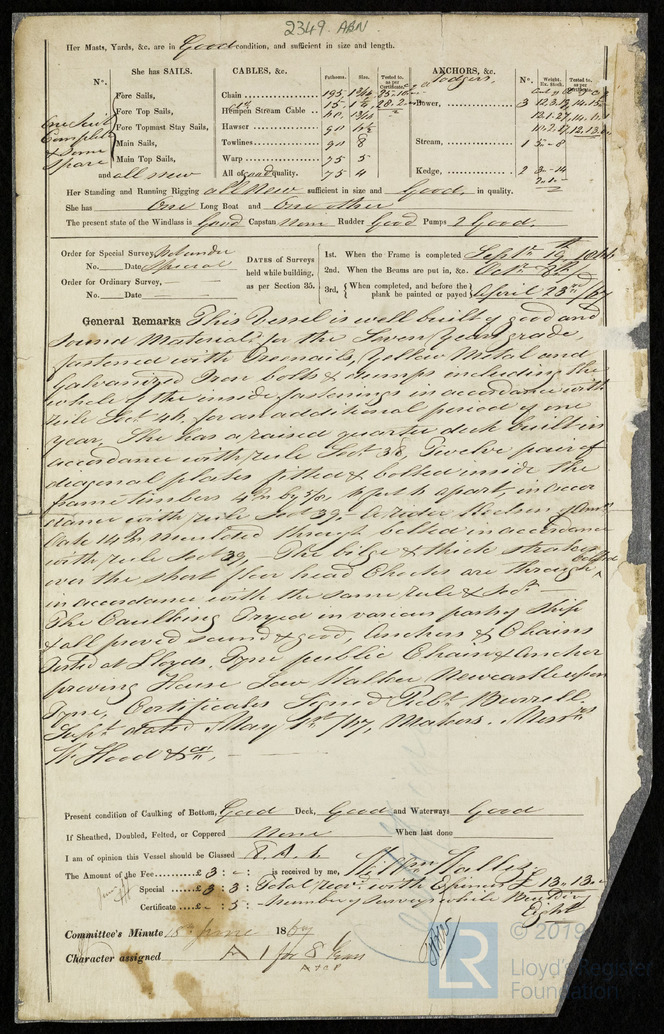 2349. ABN
Her Masts, Yards, &c. are in Good condition, and sufficient in size and length.
She has SAILS.
CABLES, &c.
Fathoms.
Size.
Tested to, as per Certificate.
ANCHORS, &c.
Nº.
Weight. Ex. Stock.
Tested to, as per Certificate.
Nº.
Fore Sails,
Chain 195
Fore Top Sails,
Hempen Stream Cable 15
Bower, 3
Fore Topmast Stay Sails,
Hawser 90
Main Sails,
Towlines 90 8
Stream, 1
Main Top Sails,
Warp 75 5
One Suit Complete & Some Spare
and all new
All of Good quality. 75 4
Kedge, 2
Her Standing and Running Rigging all New sufficient in size and Good, in quality.
She has One Long Boat and One other
The present state of the Windlass is Good Capstan None Rudder Good Pumps 2 Good.
Order for Special Survey Not under Special
No. Date
Order for Ordinary Survey,
No. Date
DATES of Surveys held while building, as per Section 35.
1st. When the Frame is completed Septr. 19th 1866
2nd. When the Beams are put in, &c. Octr.
3rd. When completed, and before the plank be painted or payed April 23rd /67
General Remarks This Vessel is well built of good and
sound Materials for the Seven Years grade,
fastened with Treenails, Yellow Metal and
Galvanized Iron bolts & dumps including the
whole of the inside fastenings in accordance with
rule Sect. 46, for an additional period of one
year, She has a raised quarter deck built in
accordance with rule Sect. 38, Twelve pair of
diagonal plates fitted & bolted inside the
frame timbers apart, in accor
dance with rule Sect 39,- A rider Keelson of Amn.
Oak 14 In moulded through bolted in accordance
with rule Sect 39,- The bilge & thick strakes
over the short floor head Chocks are through bolted
in accordance with the same rule & Sect.
The Caulking Tryed in various parts of Ship
& all proved sound & good, Anchors & Chains
tested at Lloyds, Tyne public Chain & Anchor
proving House Low Walker Newcastle upon
Tyne, Certificates Signed Robt. Burrell
Supt. dated May 1st /67, Makers. Messrs
W. Hood & Co.
Present condition of Caulking of Bottom, Good Deck, Good and Waterways Good
If Sheathed, Doubled, Felted, or Coppered None When last done
I am of opinion this Vessel should be Classed 8. A. 1.
The Amount of the Fee £ 3 : - : is received by me,
Special £ 3 : 3 : Total
Certificate £ - : 5 : number of Surveys while Building Eight
Committee's Minute 15th June 1867
Character assigned A 1 for 8 Years
© 2019
LR
Lloyd's Register
Foundation